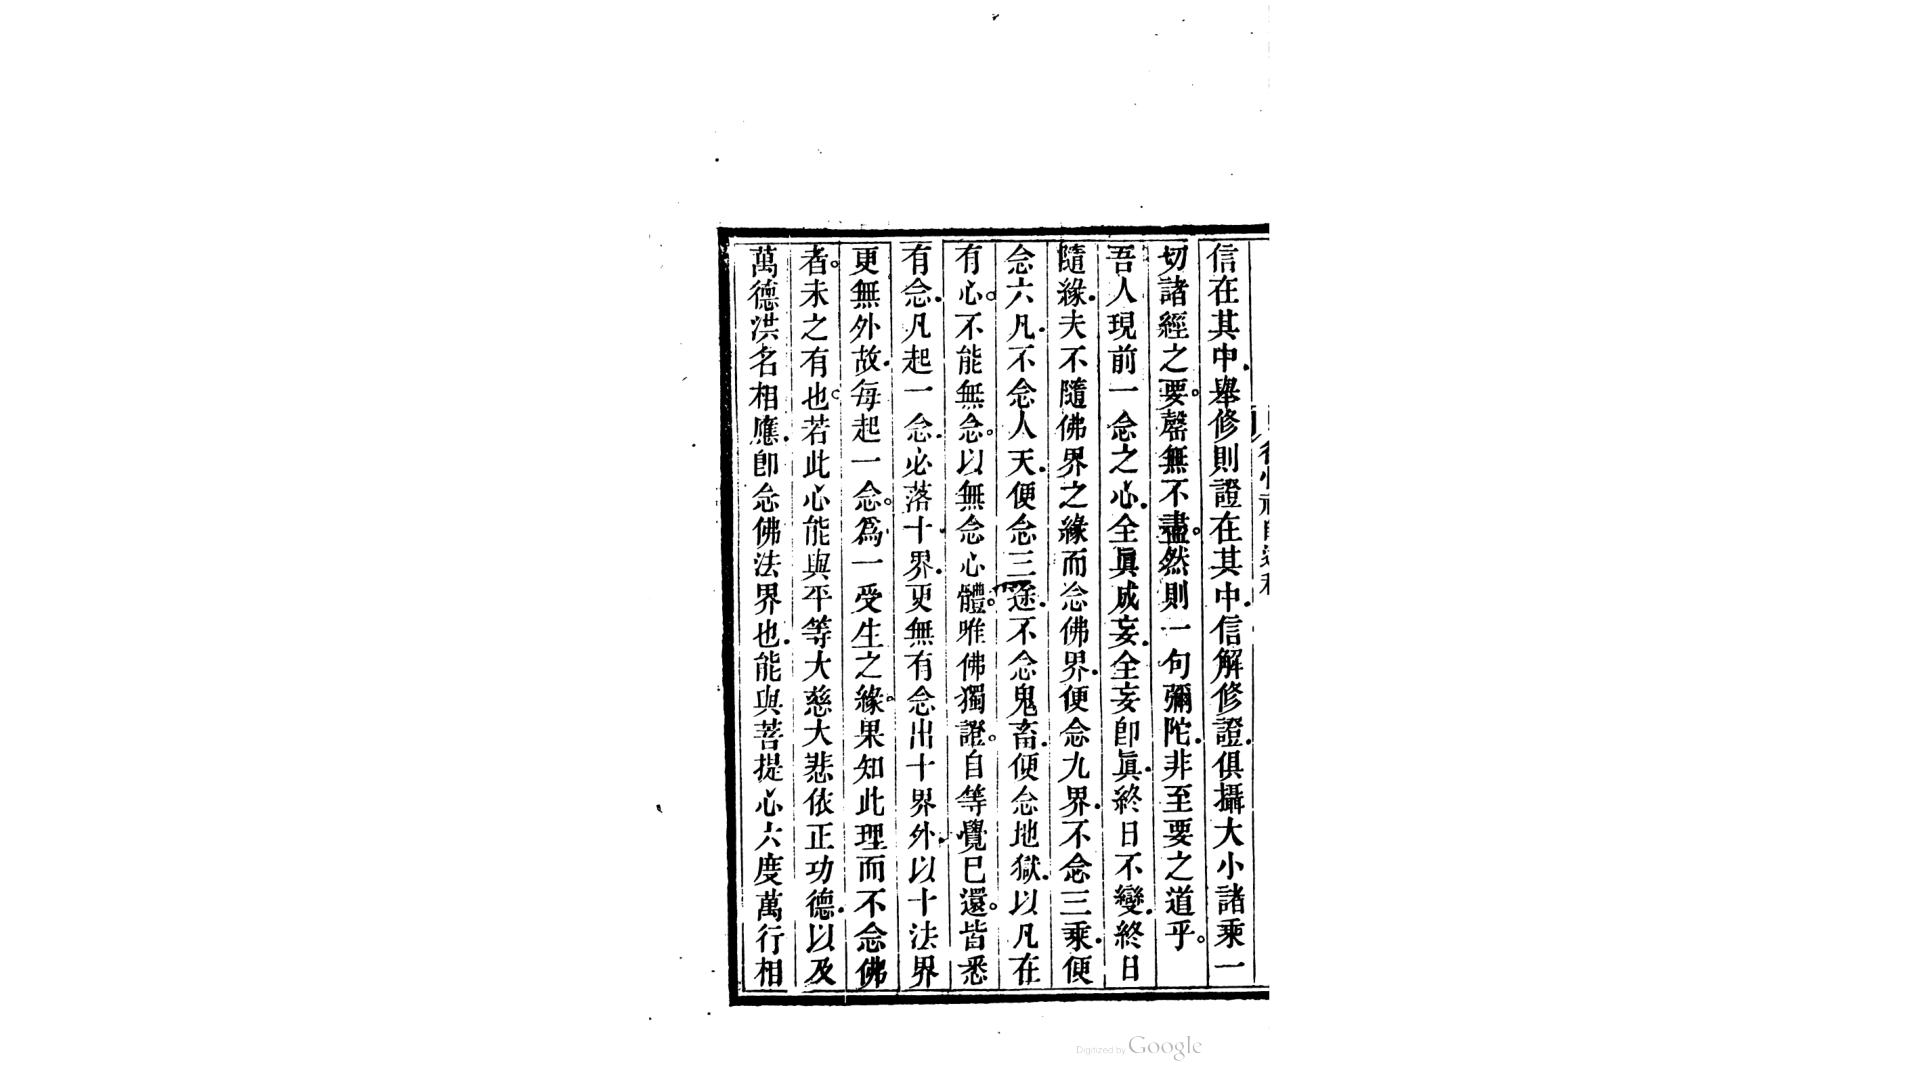 信在其中.舉修則證在其中.信解修證.俱攝大小諸乘一
切諸經之要。罄無不盡。然則一句彌陀.非至要之道乎。
吾人現前一念之心.全眞成妄.全妄卽眞.終日不變.終日
隨緣.夫不隨佛界之緣而念佛界.便念九界.不念三乘.便
念六凡.不念人天.便念三途.不念鬼畜.便念地獄.以凡在
有心。不能無念。以無念心體。唯佛獨證。自等覺已還。皆悉
有念.凡起一念.必落十界.更無有念出十界外.以十法界
更無外故.每起一念。爲一受生之緣。果知此理而不念佛
者。未之有也。若此心能與平等大慈大悲依正功德.以及
萬德洪名相應.卽念佛法界也.能與菩提心六度萬行相
Digitized by Google